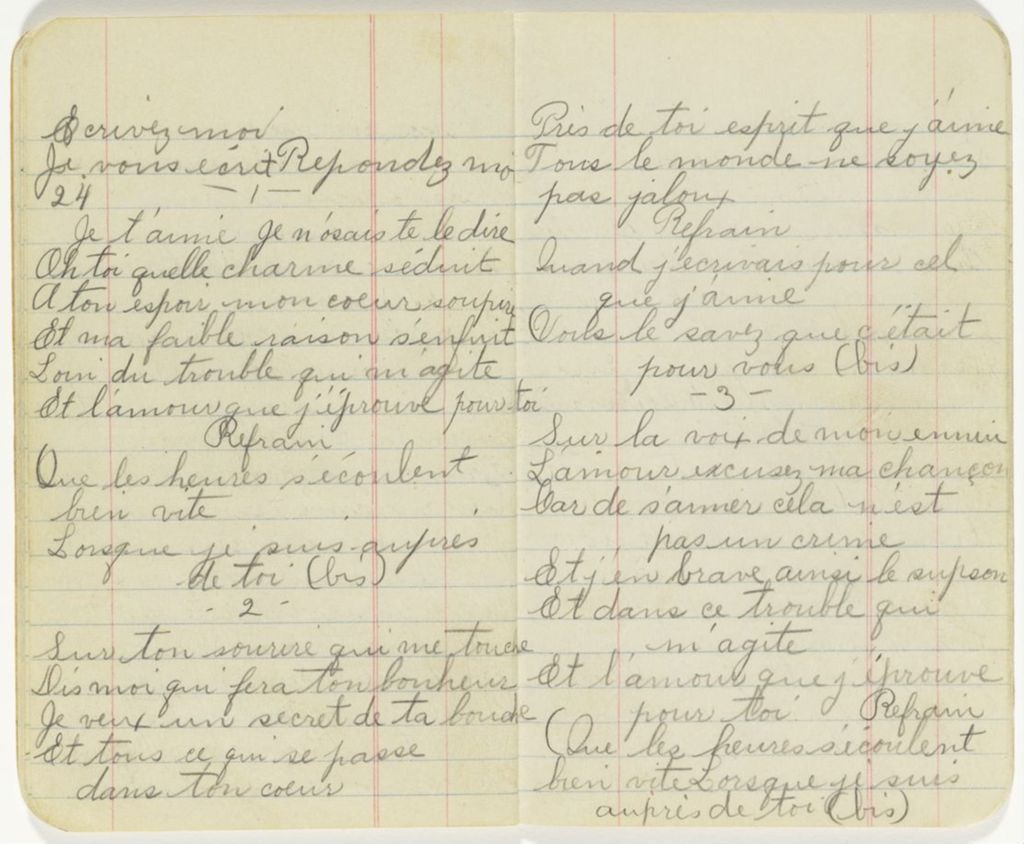 Ecrivez moi
Je vous écrit Repondez mo
24 — 1 —
Je t'aime Je n'osais te le dire
Oh toi quelle charme séduit
A ton espoir mon coeur soupire
Et ma faible raison s'enfuit
Loin du trouble qui m'agite
Et l'amour que j'éprouve pour toi
Refrain
Que les heures s'écoulent
bien vite
Lorsque je suis auprès
de toi (bis)
- 2 -
Sur ton sourire qui me touche
Dis moi qui fera ton bonheur
Je veux un secret de ta bouche
Et tous ce qui se passe
dans ton coeur
Près de toi esprit que j'aime
Tous le monde ne soyez
pas jaloux
Refrain
Quand j'écrivais pour cel
que j'aime
Vous le savez que c'était
pour vous (bis)
- 3 -
Sur la voix de mon ennui
L'amour excusez ma chançon
Car de s'aimer céla n'est
pas un crime
Et j'en brave ainsi le supson
Et dans ce trouble qui
m'agite
Et l'amour que j'éprouve
pour toi Refrain
(Que les heures s'écoulent
bien vite Lorsque je suis
auprès de toi (bis)